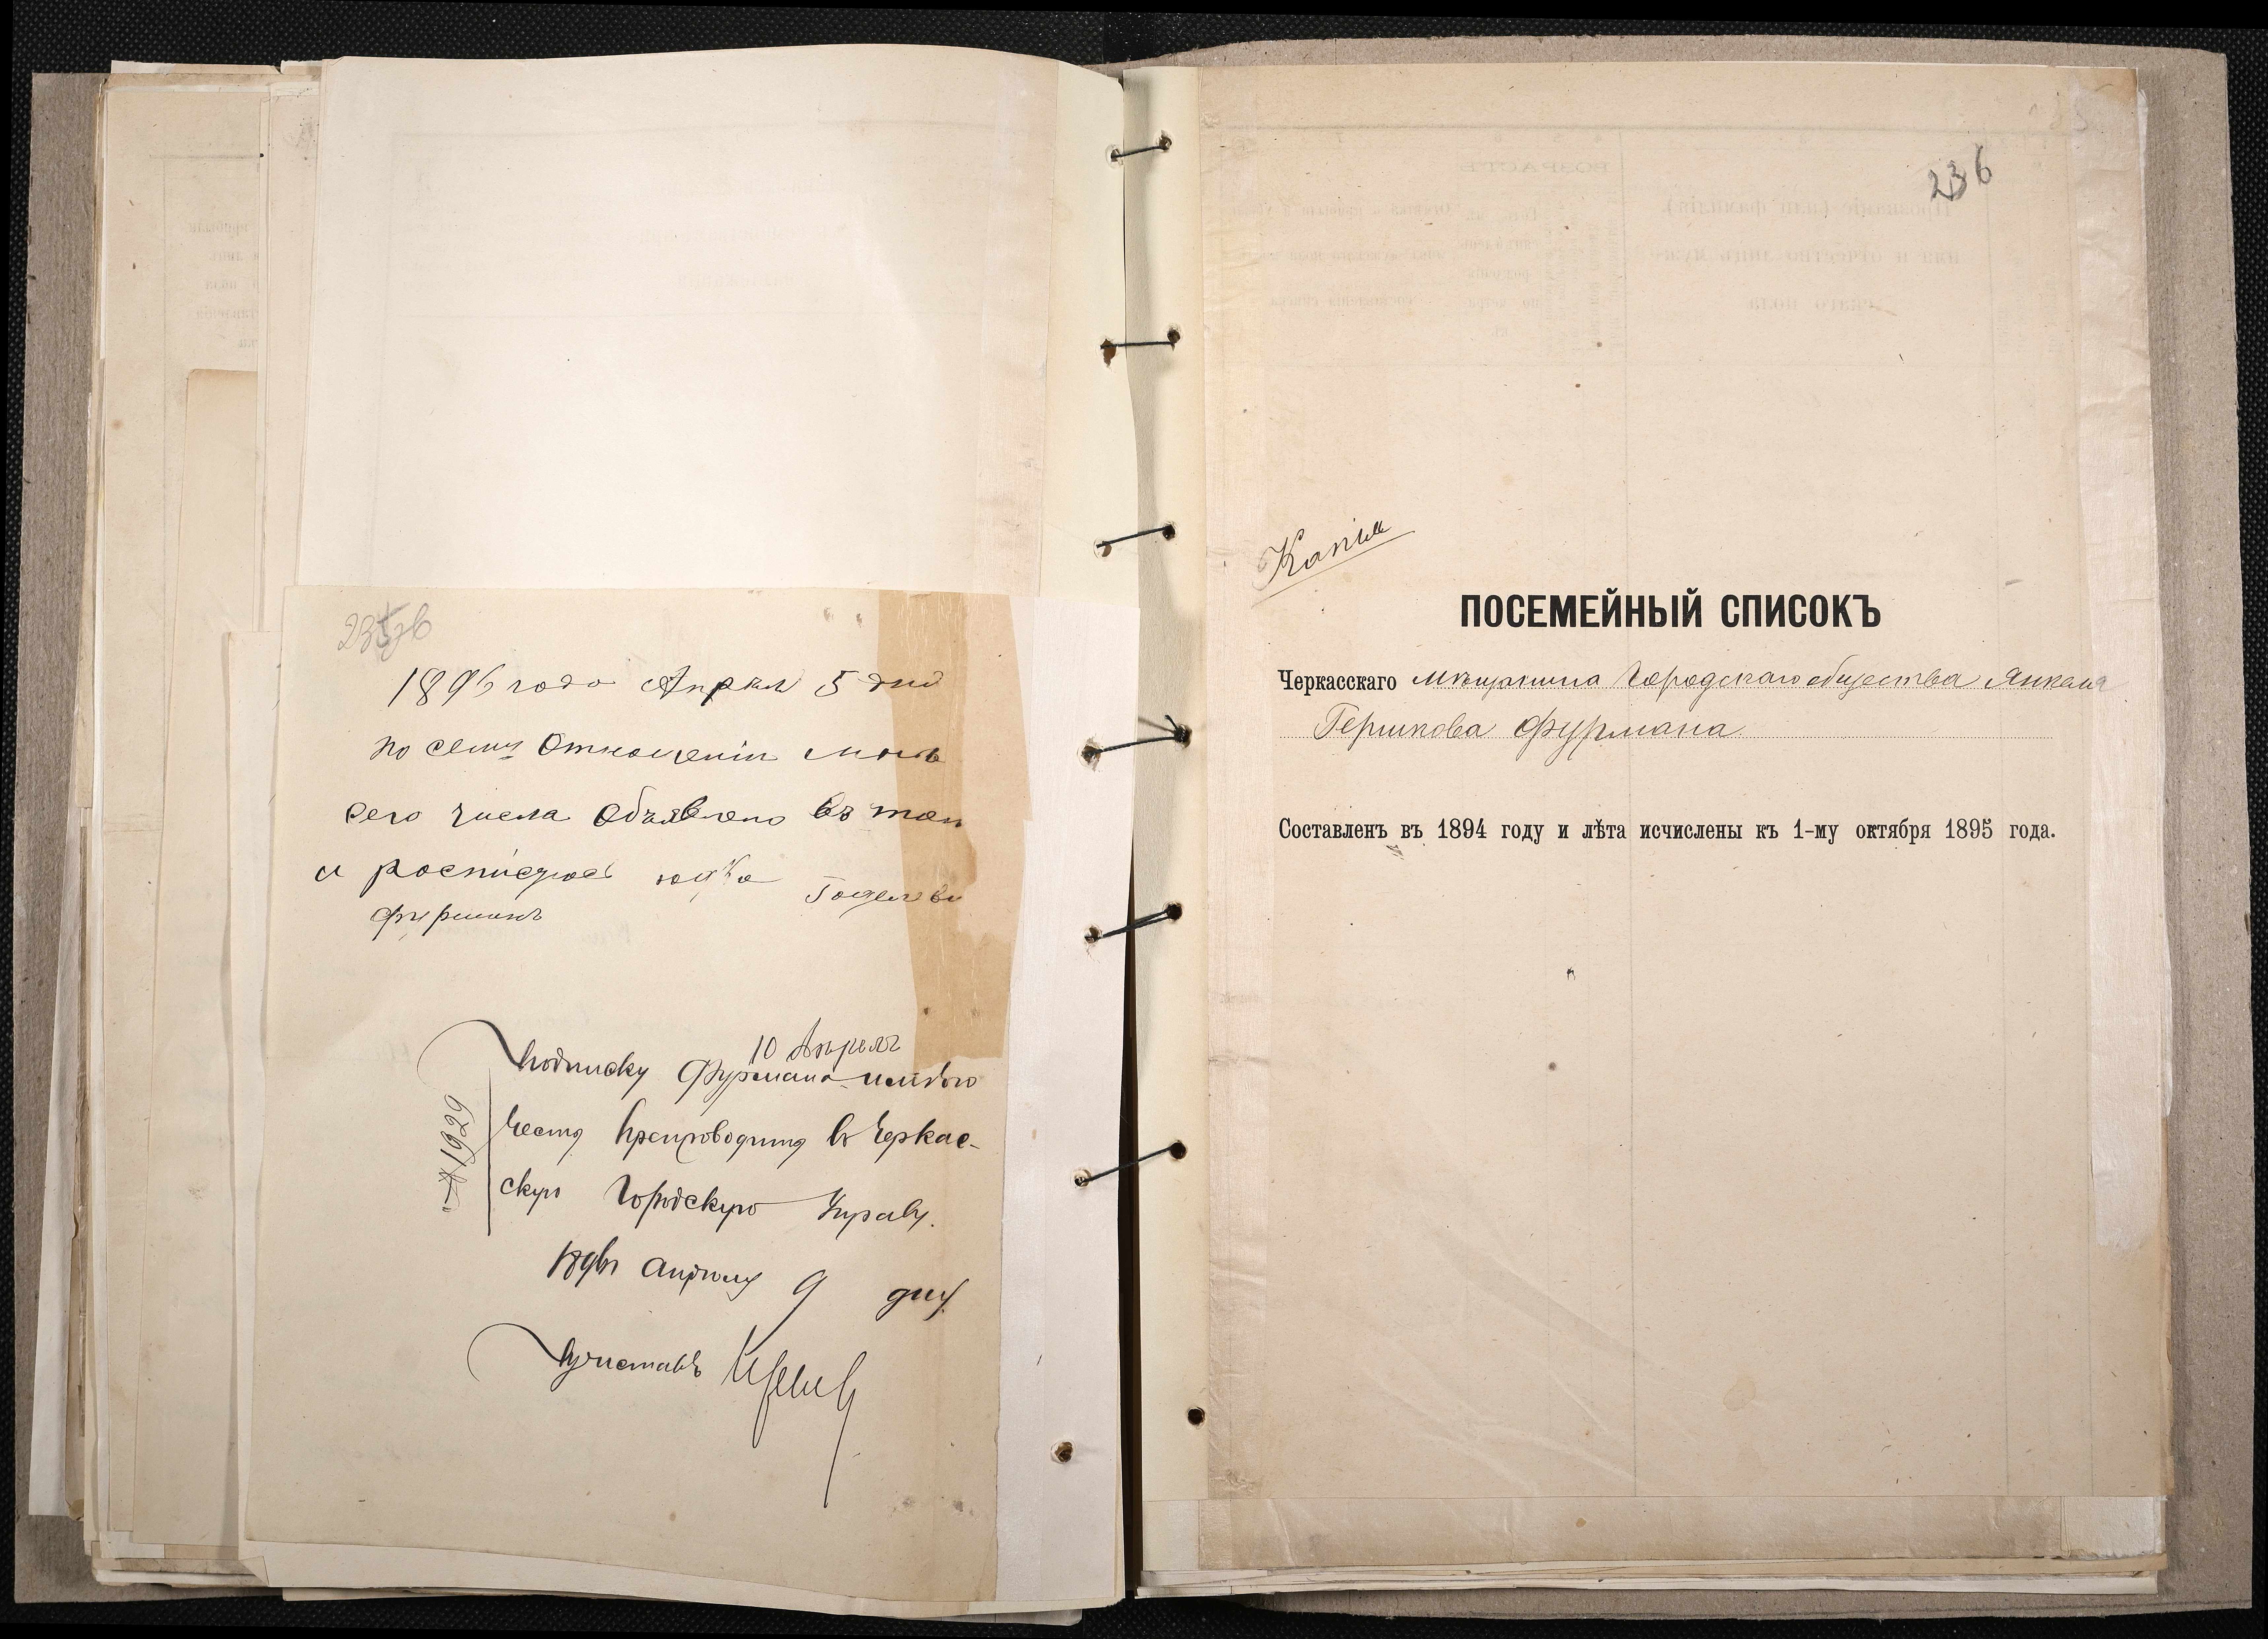 1896 года Апреля 5 дня
по сему отношенію мнѣ
сего числа объявлено въ том
и росписуюсь
Фурманъ
10 Апреля
Подписку Фурмана
честь препроводить въ Черкас-
скую Городскую Управу.
1896 г. апрѣля 9 дня
Приставъ
№ 1929
236
Копія
ПОСЕМЕЙНЫЙ СПИСОКЪ
Черкасскаго мѣщанина Городскаго общества Янкеля
Гершкова Фурмана
Составленъ въ 1894 году и лѣта исчислены къ 1-му октября 1895 года.